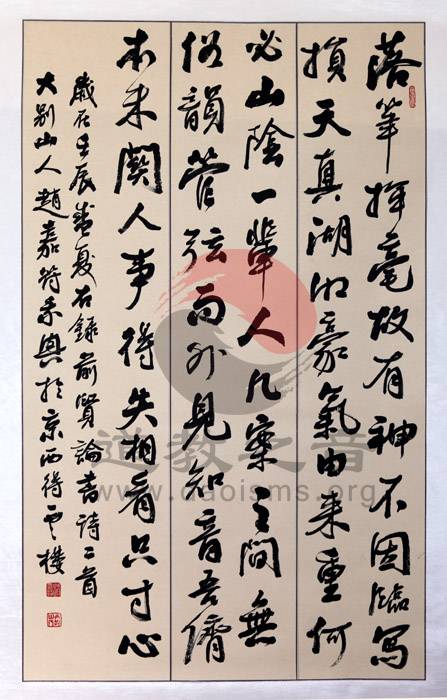 落筆揮毫故有神不因臨寫
損天真湖湘豪氣由來重何
必山陰一輩人几案之間無
俗韻管弦而外見知音吾儕
本未關人事得失相看只寸心
歲在壬辰盛夏右錄前賢論書詩二首
大別山人趙嘉符乘興於京西得雲樓
道教之音
www.daoisms.org